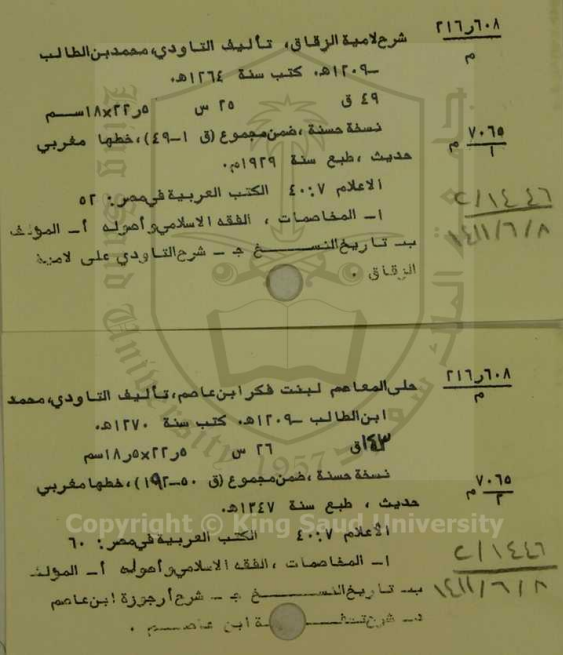 ٢١٦ر٦٠٨
م
شرح لامية الزقاق، تأليف التاودي، محمد بن الطالب
-١٢٠٩هـ. كتب سنة ١٢٦٤هـ.
٤٩ ق ٢٥ س ٥ر٢٢×١٨سم
٧٠٦٥
١ م
نسخة حسنة، ضمن مجموع (ق ١-٤٩)، خطها مغربي
حديث، طبع سنة ١٩٢٩م.
الاعلام ٧: ٤٠ الكتب العربية في مصر: ٥٢
١- المخاصمات ، الفقه الاسلامي وأصوله أ- المؤلف
ب- تاريخ النسخ ج- شرح التاودي على لامية
الزقاق .
١٤٤٦/٢
١٤١١/٦/٨
٢١٦ر٦٠٨
م
حلى المعاصم لبنت فكر ابن عاصم، تأليف التاودي، محمد
ابن الطالب -١٢٠٩هـ. كتب سنة ١٢٧٠هـ.
١٤٣ق ٢٦ س ٥ر٢٢×٥ر١٨سم
٧٠٦٥
٢ م
نسخة حسنة، ضمن مجموع (ق ٥٠-١٩٢)، خطها مغربي
حديث ، طبع سنة ١٣٤٧هـ.
الأعلام ٧: ٤٠ الكتب العربية في مصر: ٦٠
١- المخاصمات ، الفقه الاسلامي وأصوله أ- المؤلف
ب- تاريخ النسخ ج- شرح أرجوزة ابن عاصم
د- شرح ابن عاصم .
١٤٤٦/٢
١٤١١/٦/٨
King Saud University
1957
Copyright © King Saud University